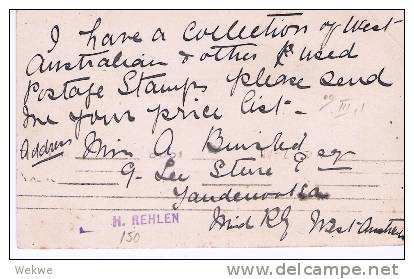 I have a collection of West
Australian & other used
Postage Stamps please send
me your price list -
Address Miss A
9. III. 1
G. Lee Steere Esq
Mid Ry West Austra
H. REHLEN
150
Wekwe
www.delcampe.net